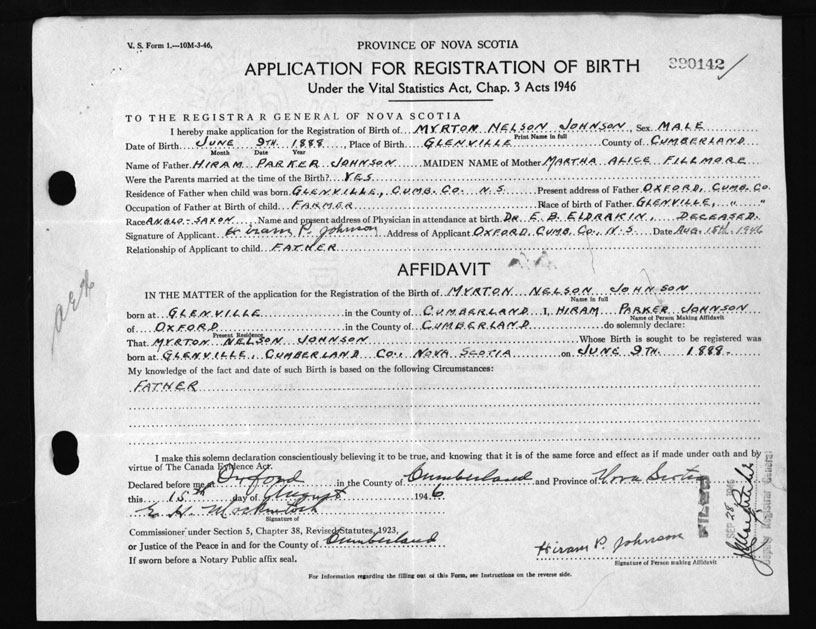 V. S. Form 1.—10M-3-46,
PROVINCE OF NOVA SCOTIA
APPLICATION FOR REGISTRATION OF BIRTH
Under the Vital Statistics Act, Chap. 3 Acts 1946
TO THE REGISTRAR GENERAL OF NOVA SCOTIA
I hereby make application for the Registration of Birth of MYRTON NELSON JOHNSON, Sex MALE
Print Name in full
Date of Birth JUNE 9TH. 1888, Place of Birth GLENVILLE County of CUMBERLAND
Month Date Year
Name of Father HIRAM PARKER JOHNSON MAIDEN NAME of Mother MARTHA ALICE FILLMORE
Were the Parents married at the time of the Birth? YES
Residence of Father when child was born GLENVILLE, CUMB. CO. N.S Present address of Father OXFORD, CUMB. CO.
Occupation of Father at Birth of child FARMER Place of birth of Father GLENVILLE, " "
Race ANGLO-SAXON, Name and present address of Physician in attendance at birth DR. E. B. ELDRAKIN, DECEASED.
Signature of Applicant Hiram P. Johnson Address of Applicant OXFORD, CUMB. CO., N.S Date AUG. 15TH, 1946
Relationship of Applicant to child FATHER
AFFIDAVIT
IN THE MATTER of the application for the Registration of the Birth of MYRTON NELSON JOHNSON
Name in full
born at GLENVILLE in the County of CUMBERLAND I, HIRAM PARKER JOHNSON
Name of Person Making Affidavit
of OXFORD in the County of CUMBERLAND do solemnly declare:
Present Residence
That MYRTON NELSON JOHNSON Whose Birth is sought to be registered was
born at GLENVILLE, CUMBERLAND CO., NOVA SCOTIA on JUNE 9TH. 1888.
My knowledge of the fact and date of such Birth is based on the following Circumstances:
FATHER
I make this solemn declaration conscientiously believing it to be true, and knowing that it is of the same force and effect as if made under oath and by
virtue of The Canada Evidence Act.
Declared before me at Oxford in the County of Cumberland and Province of Nova Scotia
this 15th day of August 1946
E. H. MacKintosh
Signature of
Commissioner under Section 5, Chapter 38, Revised Statutes, 1923,
or Justice of the Peace in and for the County of Cumberland
Hiram P. Johnson
Signature of Person making Affidavit
If sworn before a Notary Public affix seal.
For Information regarding the filling out of this Form, see Instructions on the reverse side.
FILED
SEP 28 1946
Deputy Registrar General